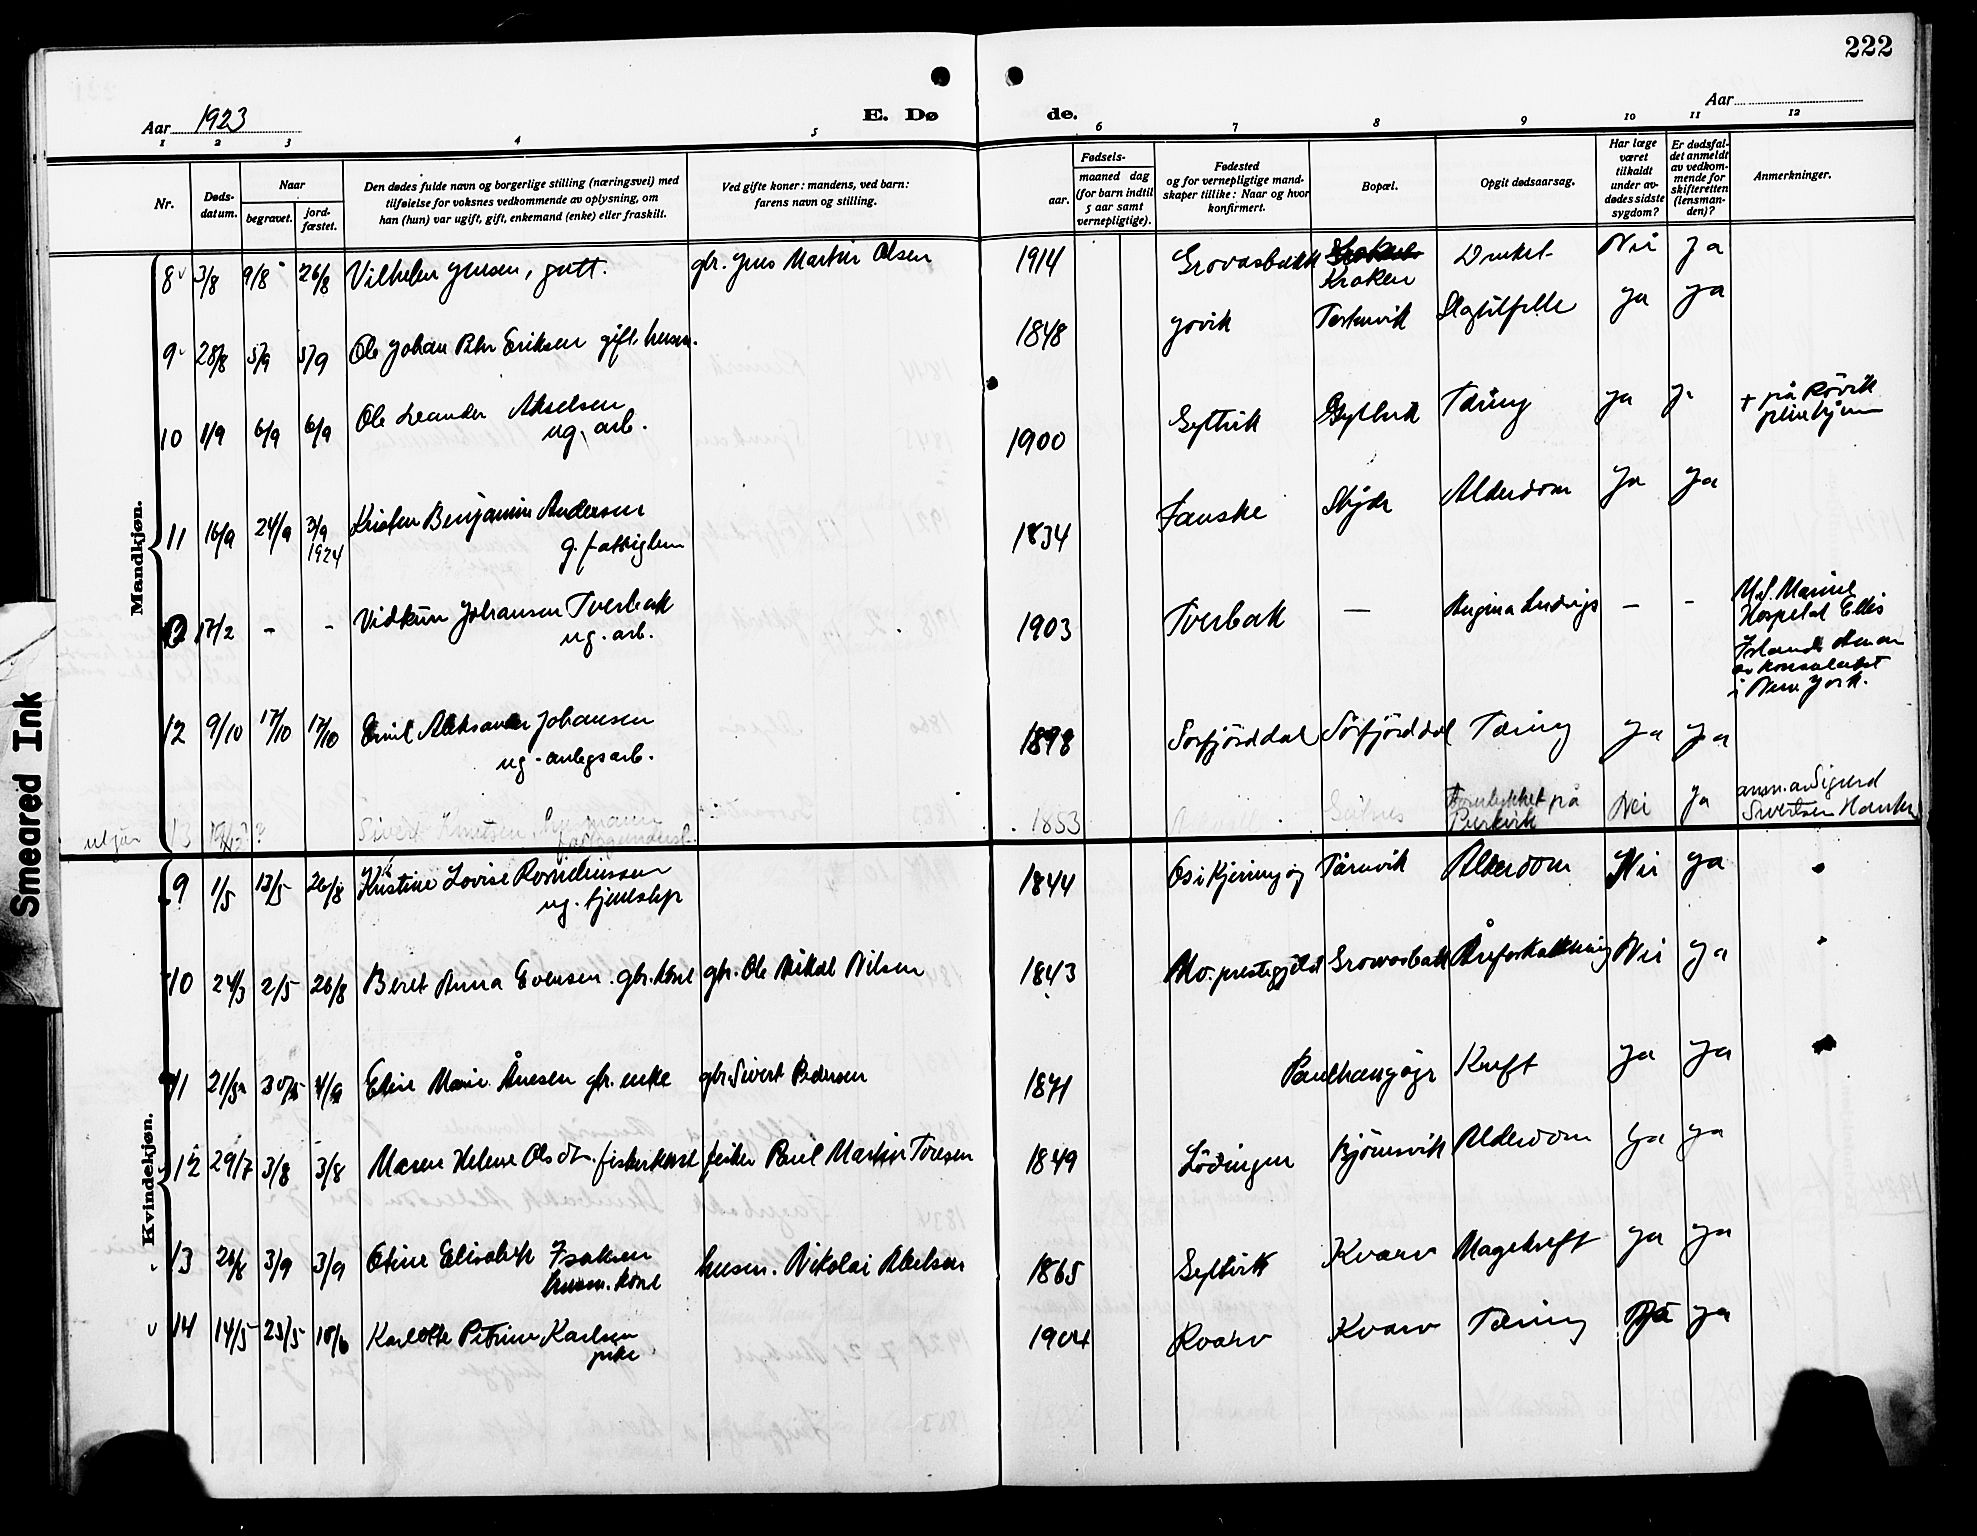 222
Aar 1923
E. Dø
de.
Aar
1 2 3 4 5 6 7 8 9 10 11 12
Nr.
Døds-
datum.
Naar
begravet.
jord-
fæstet.
Den dødes fulde navn og borgerlige stilling (næringsvei) med
tilføielse for voksnes vedkommende av oplysning, om
han (hun) var ugift, gift, enkemand (enke) eller fraskilt.
Ved gifte koner: mandens, ved barn:
farens navn og stilling.
Fødsels-
aar.
maaned dag
(for barn indtil
5 aar samt
vernepligtige).
Fødested
og for vernepligtige mand-
skaper tillike: Naar og hvor
konfirmert.
Bopæl.
Opgit dødsaarsag.
Har læge
været
tilkaldt
under av-
dødes sidste
sygdom?
Er dødsfal-
det anmeldt
av vedkom-
mende for
skifteretten
(lensman-
den)?
Anmerkninger.
Mandkjøn.
8 3/8 9/8 26/8 Vilhelm Jensen, gutt. gbr. Jens Martin Olsen 1914 Grovasbakk Kroken Druknet Nei Ja
9 28/8 5/9 5/9 Ole Johan Peder Eriksen gift husm. 1848 Jovik Tortenvik Slagtilfelle Ja Ja
10 1/9 6/9 6/9 Ole Leander Akselsen 1900 Gyltvik Gyltvik Tæring Ja Ja + på Røvik
ug. arb. pleiehjem
11 16/9 24/9 3/9 Kristen Benjamin Andersen 1834 Fauske Alderdom Ja Ja
1924 g. fattiglem
17/2 - - Vidkun Johansen Tverbak 1903 Tverbak — Angina Ludvigs - - M.S. Marine
ug. arb. Hospital Ellis
Island
av konsulatet
i New York.
12 9/10 17/10 17/10 Emil Aleksander Johansen 1898 Sørfjorddal Sørfjorddal Tæring Ja Ja
ug. anlegsarb.
utgår 13 ? Sivert Knutsen, 1853 Forulykket på Nei Ja anm. av Sigurd
Sivertsen
Kvindekjøn.
9 1/5 13/5 26/8 Kristine Lovise Kornelinssen 1844 Os i Kjerringøy Tårnvik Alderdom Nei Ja
ug. tjenestep.
10 24/3 2/5 26/8 Beret Anna Evensen. gbr. kone gbr. Ole Nikal Nilsen 1843 Mo. prestegjeld Grovasbakk Åreforkalkning Nei Ja
11 Eline Marie Ånesen gbr. enke gbr. Sivert Pedersen 1841 Kreft Ja Ja
12 29/7 3/8 3/8 Maren Helene Olsdtr. fiskerkone fisker Paul Martin Toresen 1849 Lødingen Bjørnsvik Alderdom Ja Ja
13 26/8 3/9 3/9 Otine Elisabeth Isaksen husm. Nikolai Abelsen 1865 Gyltvik Kvarv Magekreft Ja Ja
husm. kone
14 14/5 23/5 10/6 Karlotte Petrine Karlsen 1904 Kvarv Kvarv Tæring Ja Ja
pike
Smeared Ink